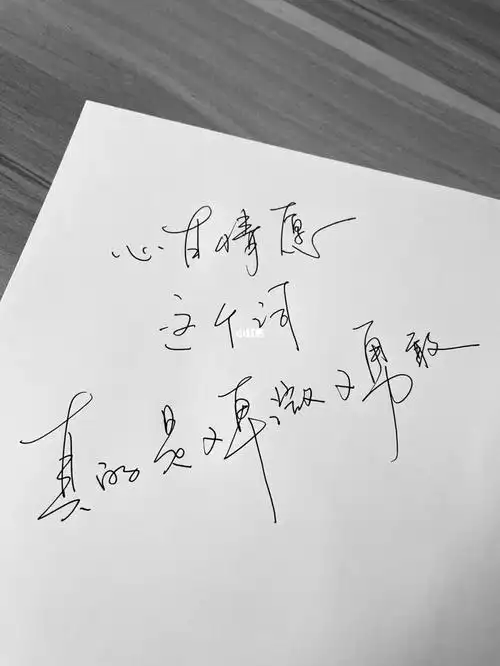 心甘情愿
这个词
真的是又卑微又勇敢